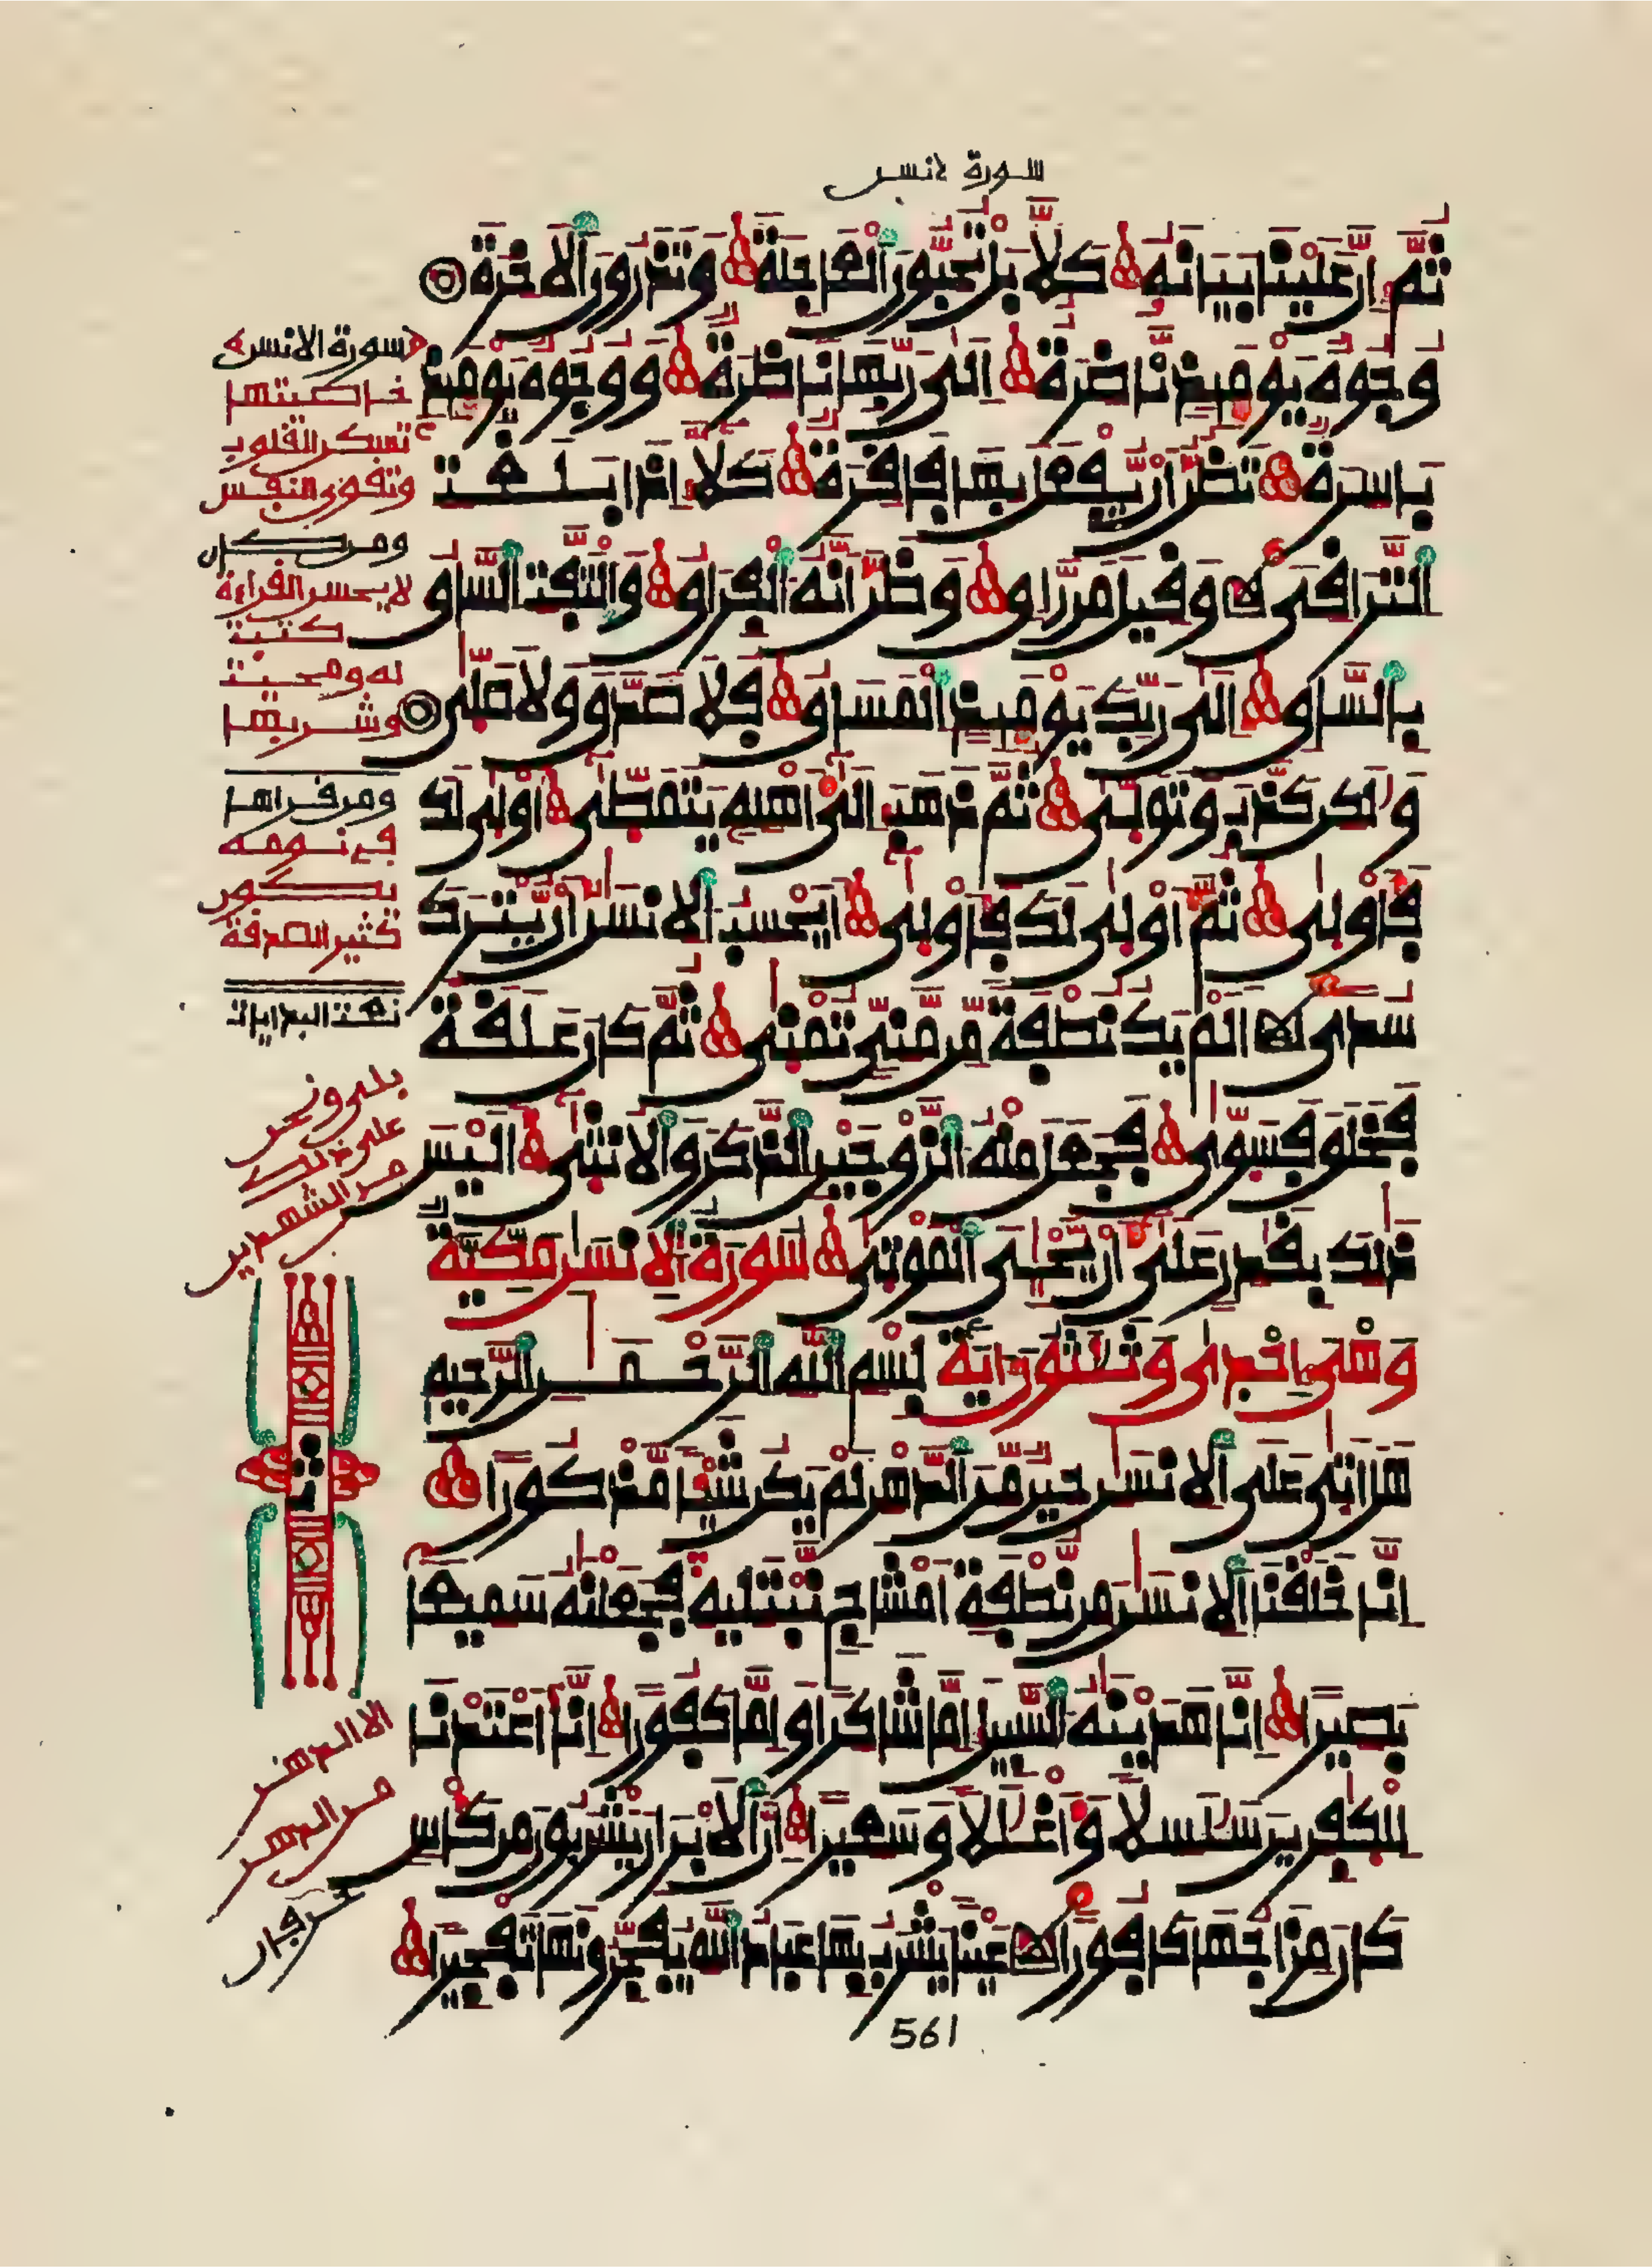 سورة لانسن
ثُمَّ إِنَّ عَلَيْنَا بَيَانَهُ كَلَّا بَلْ تُحِبُّونَ ٱلْعَاجِلَةَ وَتَذَرُونَ ٱلْأَخِرَةَ
وُجُوهٌ يَوْمَئِذٍ نَّاضِرَةٌ إِلَىٰ رَبِّهَا نَاظِرَةٌ وَوُجُوهٌ يَوْمَئِذٍ
بَاسِرَةٌ تَظُنُّ أَنْ يُّفْعَلَ بِهَا فَاقِرَةٌ كَلَّا إِذَا بَلَغَتِ
ٱلتَّرَاقِىَ وَقِيلَ مَن رَّاقٍ وَظَنَّ أَنَّهُ ٱلْفِرَاقُ وَٱلْتَفَّتِ ٱلسَّاقُ
بِٱلسَّاقِ إِلَىٰ رَبِّكَ يَوْمَئِذٍ ٱلْمَسَاقُ فَلَا صَدَّقَ وَلَا صَلَّىٰ
وَلَٰكِن كَذَّبَ وَتَوَلَّىٰ ثُمَّ ذَهَبَ إِلَىٰ أَهْلِهِ يَتَمَطَّىٰ أَوْلَىٰ لَكَ
فَأَوْلَىٰ ثُمَّ أَوْلَىٰ لَكَ فَأَوْلَىٰ أَيَحْسِبُ ٱلْإِنسَٰنُ أَنْ يُّتْرَكَ
سُدًى أَلَمْ يَكُ نُطْفَةً مِّن مَّنِىٍّ تُمْنَىٰ ثُمَّ كَانَ عَلَقَةً
فَخَلَقَ فَسَوَّىٰ فَجَعَلَ مِنْهُ ٱلزَّوْجَيْنِ ٱلذَّكَرَ وَٱلْأُنثَىٰ أَلَيْسَ
ذَٰلِكَ بِقَٰدِرٍ عَلَىٰ أَنْ يُّحْـِىَ ٱلْمَوْتَىٰ سُورَةُ ٱلْإِنسَٰنِ مَكِّيَّةٌ
وَهْىَ إِحْدَىٰ وَثَلَٰثُونَ ءَايَةً بِسْمِ ٱللَّهِ ٱلرَّحْمَٰنِ ٱلرَّحِيمِ
هَلْ أَتَىٰ عَلَى ٱلْإِنسَٰنِ حِينٌ مِّنَ ٱلدَّهْرِ لَمْ يَكُن شَيْئًا مَّذْكُورًا
إِنَّا خَلَقْنَا ٱلْإِنسَٰنَ مِن نُّطْفَةٍ أَمْشَاجٍ نَّبْتَلِيهِ فَجَعَلْنَٰهُ سَمِيعًا
بَصِيرًا إِنَّا هَدَيْنَٰهُ ٱلسَّبِيلَ إِمَّا شَاكِرًا وَإِمَّا كَفُورًا إِنَّا أَعْتَدْنَا
لِلْكَٰفِرِينَ سَلَٰسِلًا وَأَغْلَٰلًا وَسَعِيرًا إِنَّ ٱلْأَبْرَارَ يَشْرَبُونَ مِن كَأْسٍ
كَانَ مِزَاجُهَا كَافُورًا عَيْنًا يَشْرَبُ بِهَا عِبَادُ ٱللَّهِ يُفَجِّرُونَهَا تَفْجِيرًا
561
سورة الانسن
خاصيتها
تسكن القلوب
وتقوى النفس
ومن كان
لا يحسن القراءة
كتبت
له ومحيت
وشربها
ومن قراها
في نومه
يكون
كثير الصدقة
بلى ونحن
على ذلك
من الشهدين
من الدهر